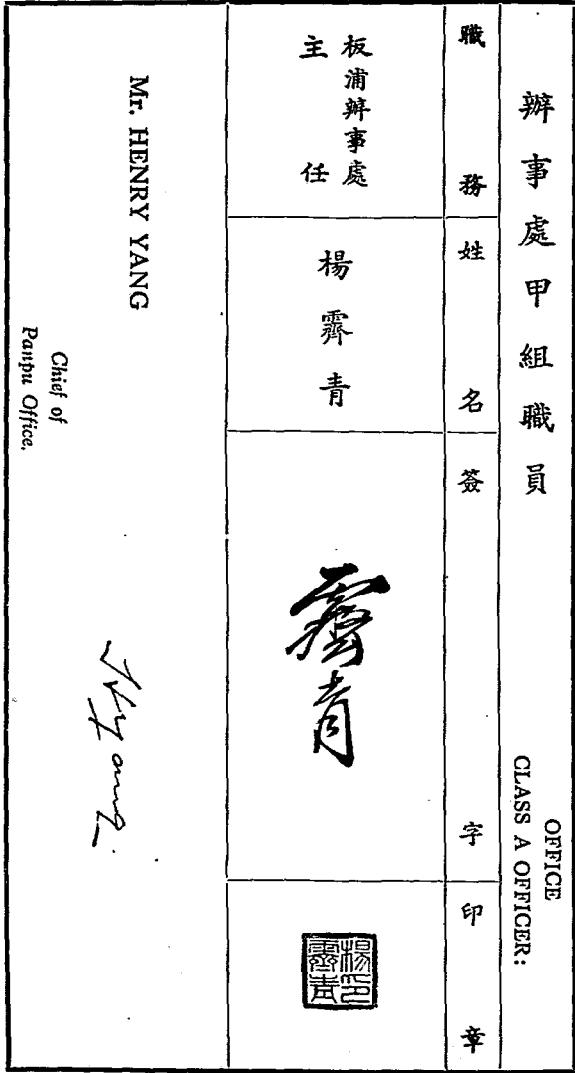 辦事處甲組職員
OFFICE
CLASS A OFFICER:
職務
姓名
簽字
印章
板浦辦事處
主任
楊霽青
霽青
楊印
霽青
Mr. HENRY YANG
Chief of
Panpu Office.
HYang.